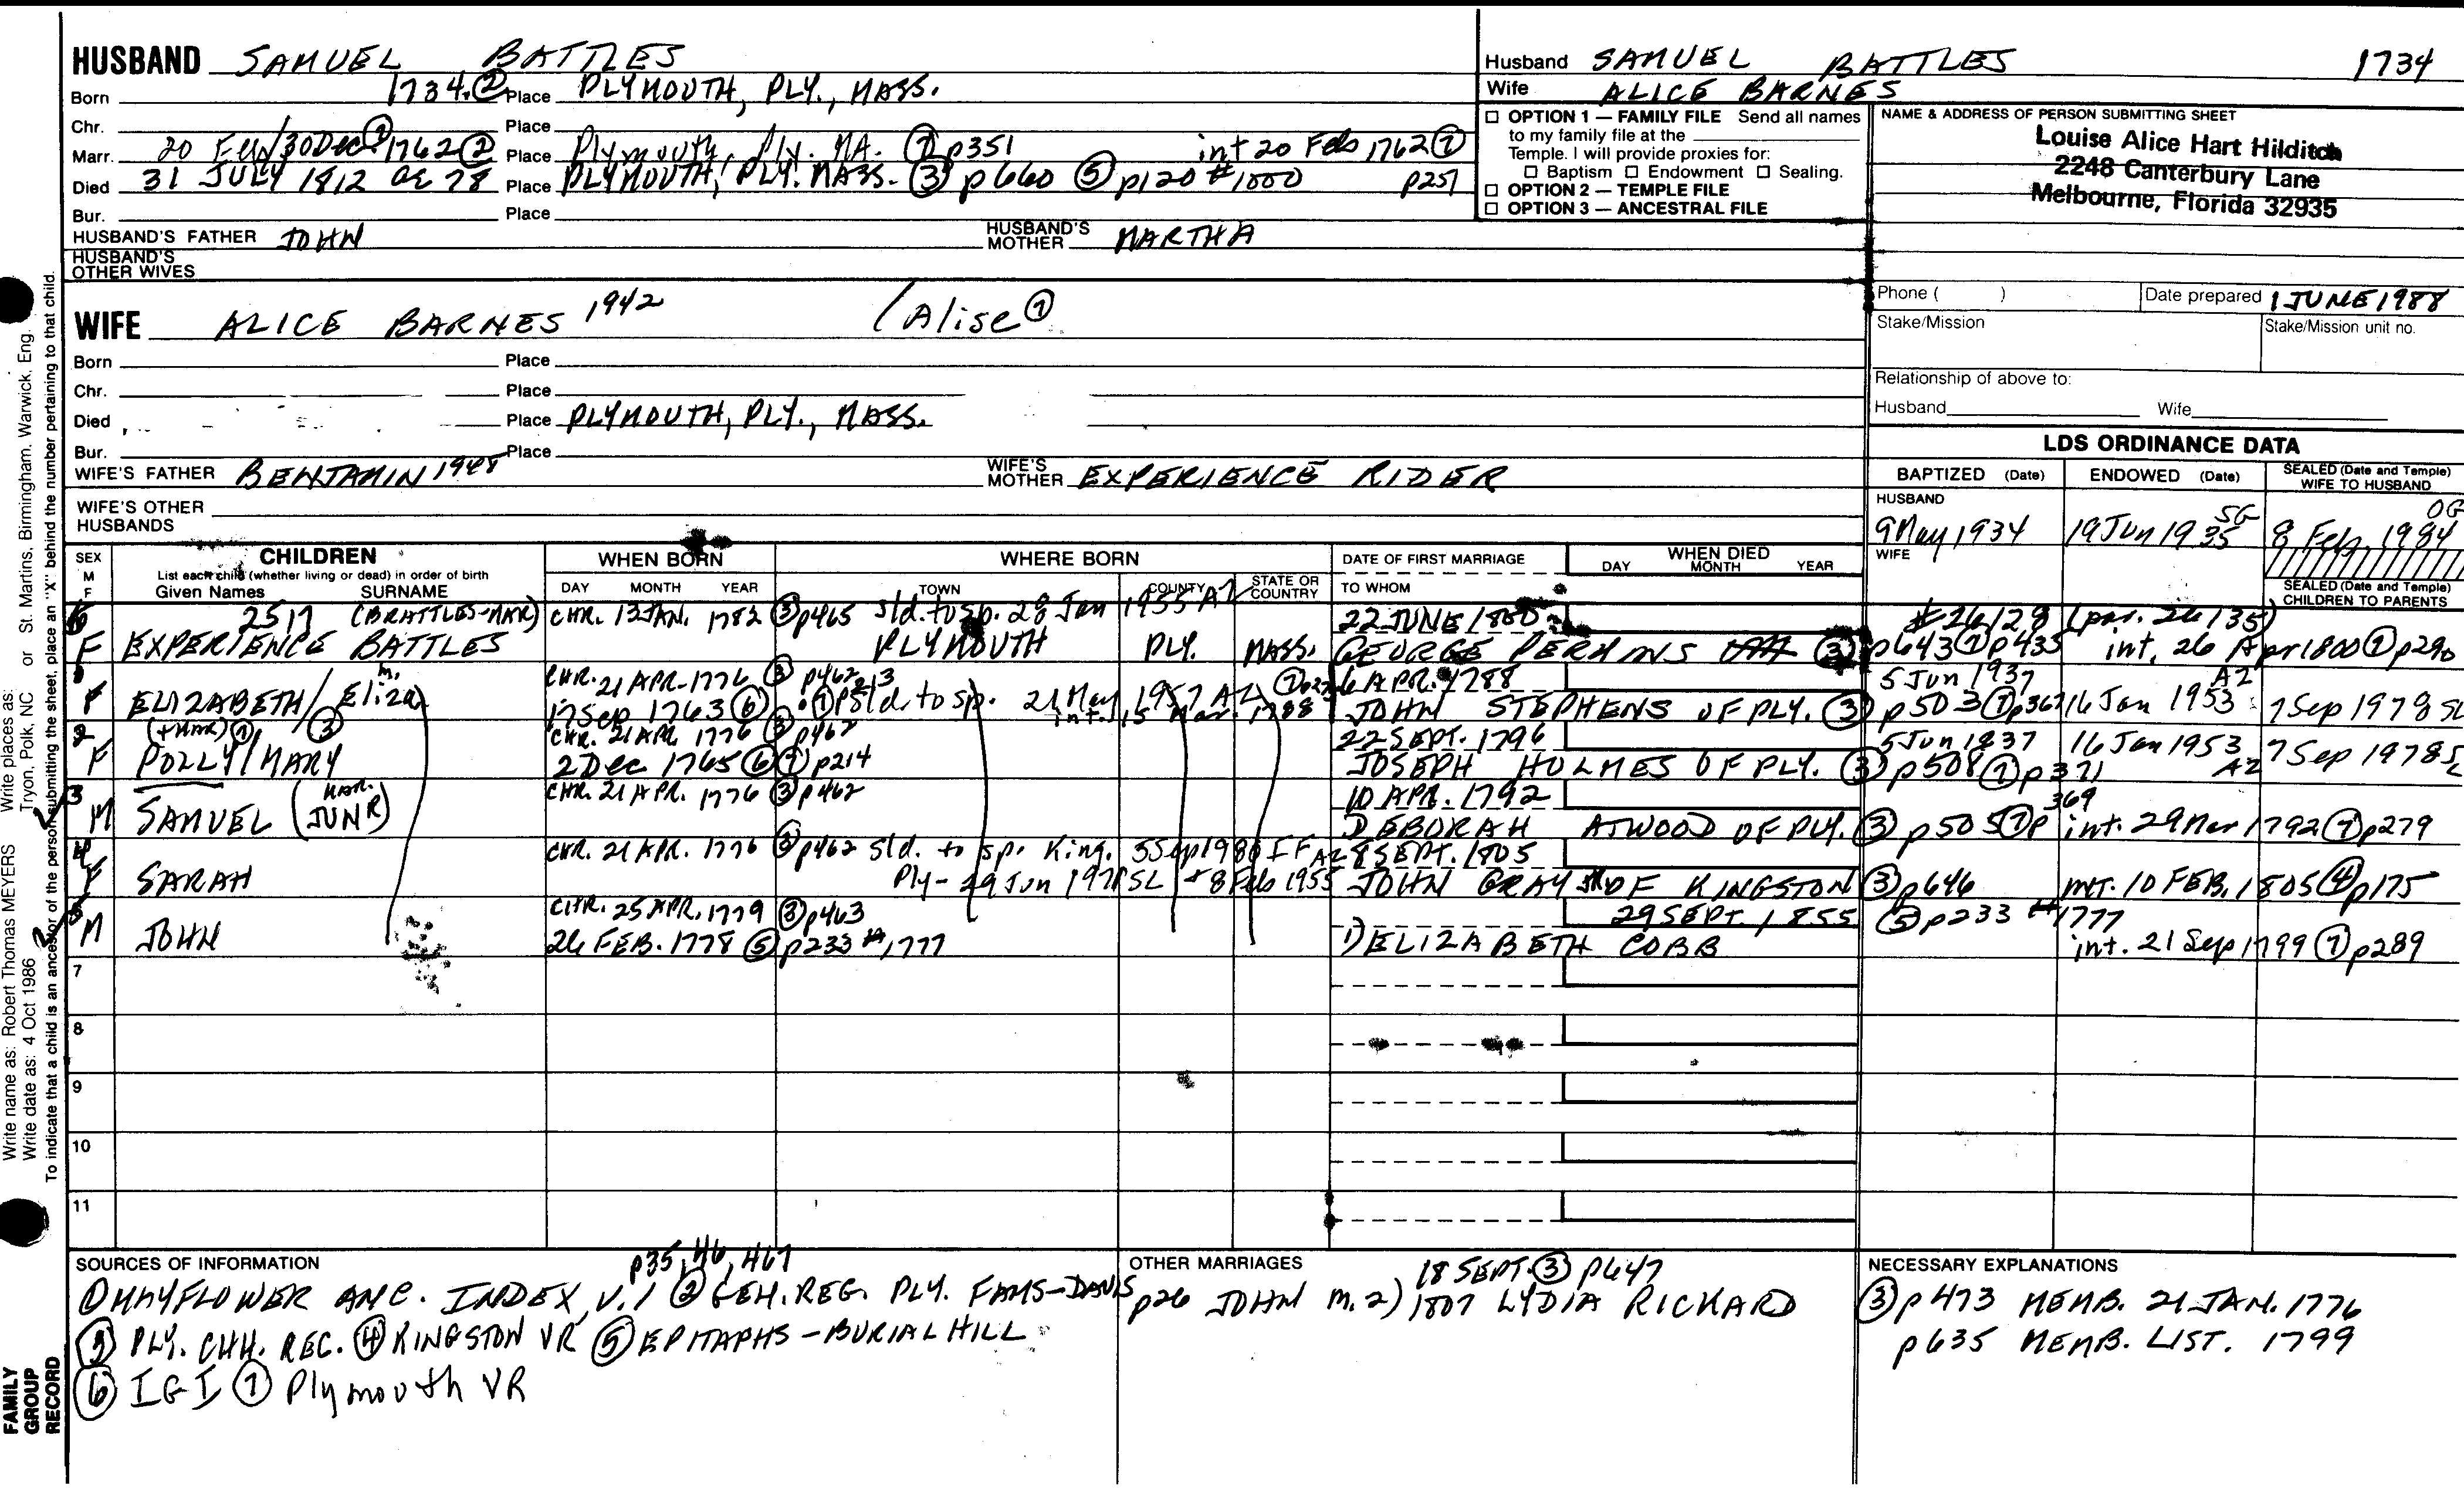 HUSBAND SAMUEL BATTLES
Born 1734 ② Place PLYMOUTH, PLY., MASS.
Chr. Place
Marr. 20 Feb/30 Dec ⑦ 1762 ② Place Plymouth, Ply. MA. ⑦ p351 int 20 Feb 1762 ⑦
Died 31 JULY 1812 ae 78 Place PLYMOUTH, PLY. MASS. ③ p660 ⑤ p120 #1000 p257
Bur. Place
HUSBAND'S FATHER JOHN HUSBAND'S MOTHER MARTHA
HUSBAND'S OTHER WIVES
WIFE ALICE BARNES 1942 (Alise ⑦
Born Place
Chr. Place
Died Place PLYMOUTH, PLY., MASS.
Bur. Place
WIFE'S FATHER BENJAMIN 1948 WIFE'S MOTHER EXPERIENCE RIDER
WIFE'S OTHER HUSBANDS
Husband SAMUEL BATTLES 1734
Wife ALICE BARNES
☐ OPTION 1 — FAMILY FILE Send all names
to my family file at the
Temple. I will provide proxies for:
☐ Baptism ☐ Endowment ☐ Sealing.
☐ OPTION 2 — TEMPLE FILE
☐ OPTION 3 — ANCESTRAL FILE
NAME & ADDRESS OF PERSON SUBMITTING SHEET
Louise Alice Hart Hilditch
2248 Canterbury Lane
Melbourne, Florida 32935
Phone ( ) Date prepared 1 JUNE 1988
Stake/Mission Stake/Mission unit no.
Relationship of above to:
Husband Wife
LDS ORDINANCE DATA
BAPTIZED (Date) ENDOWED (Date) SEALED (Date and Temple) WIFE TO HUSBAND
HUSBAND
9 May 1934 19 Jun 1935 SG 8 Feb 1984 OG
WIFE
SEALED (Date and Temple) CHILDREN TO PARENTS
SEX M F CHILDREN WHEN BORN WHERE BORN DATE OF FIRST MARRIAGE WHEN DIED
List each child (whether living or dead) in order of birth
Given Names SURNAME DAY MONTH YEAR TOWN COUNTY STATE OR COUNTRY TO WHOM DAY MONTH YEAR
6 2517 (BRATTLES-MAR) CHR. 13 JAN. 1782 ③ p465 sld. to sp. 28 Jan 1955 AZ 22 JUNE 1800 #26128 (par. 26135)
F EXPERIENCE BATTLES PLYMOUTH PLY. MASS. GEORGE PERKINS ③ p643 ⑦ p435 int. 26 Apr 1800 ⑦ p290
1 m. CHR. 21 APR. 1776 ③ p462 6 APR. 1788 5 Jun 1937 AZ
F ELIZABETH/Eliza 17 Sep 1763 ⑥ ⑦ p213 sld. to sp. 21 May 1957 AZ int. 15 Mar. 1788 JOHN STEPHENS OF PLY. ③ p503 ⑦ p367 16 Jan 1953 7 Sep 1978 SL
2 (+MAR) ⑦ ③ CHR. 21 APR. 1776 ③ p462 22 SEPT. 1796 5 Jun 1837 16 Jan 1953 AZ 7 Sep 1978 SL
F POLLY/MARY 2 Dec 1765 ⑥ ⑦ p214 JOSEPH HOLMES OF PLY. ③ p508 ⑦ p371
3 MAR. CHR. 21 APR. 1776 ③ p462 10 APR. 1792 369
M SAMUEL (JUNR) DEBORAH ATWOOD OF PLY. ③ p505 ⑦ p int. 29 Mar 1792 ⑦ p279
4 CHR. 21 APR. 1776 ③ p462 sld. to sp. King. 5 Sep 1980 IF AZ 8 SEPT. 1805
F SARAH Ply- 29 Jun 1971 SL + 8 Feb 1955 JOHN GRAY JR OF KINGSTON ③ p646 INT. 10 FEB. 1805 ④ p175
5 CHR. 25 APR. 1779 ③ p463 29 SEPT. 1855 ⑤ p233 #1777
M JOHN 26 FEB. 1778 ⑤ p233 #1777 1) ELIZABETH COBB int. 21 Sep 1799 ⑦ p289
7
8
9
10
11
SOURCES OF INFORMATION p35, 46, 467
① MAYFLOWER ANC. INDEX, V. 1 ② GEN. REG. PLY. FAMS-DAVIS p26
③ PLY. CHH. REC. ④ KINGSTON VR ⑤ EPITAPHS - BURIAL HILL
⑥ IGI ⑦ Plymouth VR
OTHER MARRIAGES 18 SEPT. ③ p647
JOHN m. 2) 1807 LYDIA RICKARD
NECESSARY EXPLANATIONS
③ p473 MEMB. 21 JAN. 1776
p635 MEMB. LIST. 1799
Write name as: Robert Thomas MEYERS Write places as:
Write date as: 4 Oct 1986 Tryon, Polk, NC or St. Martins, Birmingham, Warwick, Eng.
To indicate that a child is an ancestor of the person submitting the sheet, place an "X" behind the number pertaining to that child.
FAMILY
GROUP
RECORD